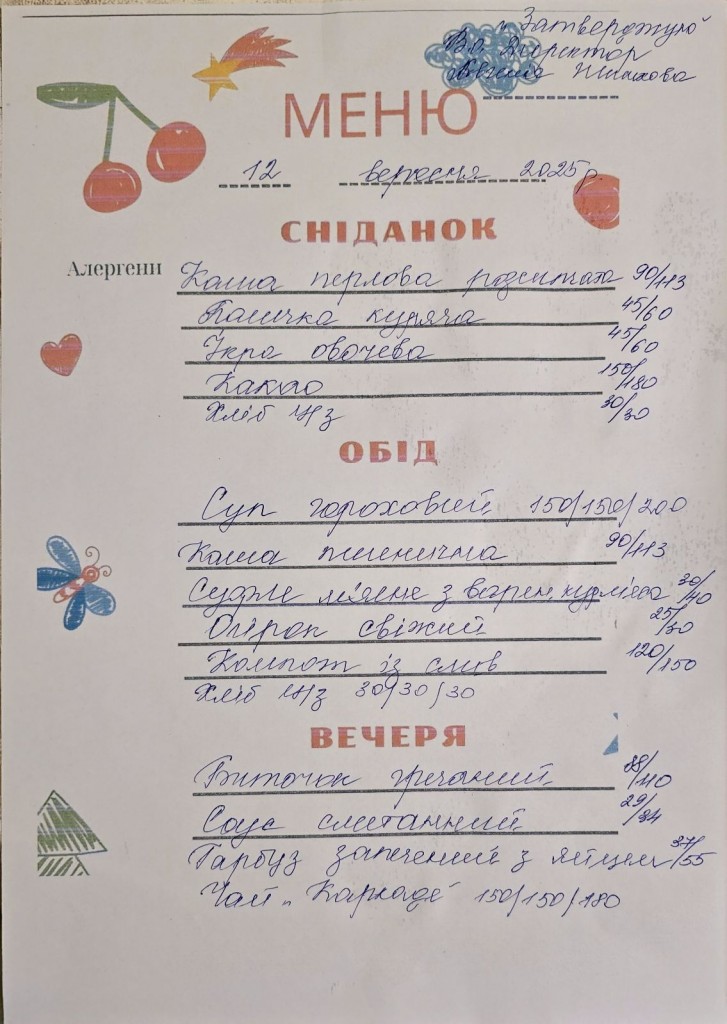 Затверджую
В.о. директор
МЕНЮ
12 вересня 2025р.
СНІДАНОК
Алергени
Каша перлова розсипчата 90/113
Паличка куряча 45/60
Ікра овочева 45/60
Какао 150/180
Хліб ц/з 30/30
ОБІД
Суп гороховий 150/150/200
Каша пшенична 90/113
Суфле м'ясне з варен. кур. м'яса 30/40
Огірок свіжий 25/30
Компот із слив 120/150
Хліб ц/з 30/30/30
ВЕЧЕРЯ
Биточок гречаний 88/110
Соус сметанний 29/34
Гарбуз запечений з яйцем 37/55
Чай „Каркаде" 150/150/180